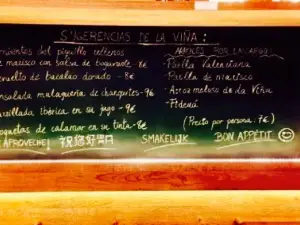 S'GERENCIAS DE LA VIÑA:
mientos del piquillo rellenos
marisco con salsa de bogavante 8€
vuelto de bacalao dorado - 8€
nsalada malagueña de - 9€
arrillada Ibérica en su jugo - 9€
oquetas de calamar en su tinta - 8€
ARROCES POR ENCARGO:
- Paella Valenciana
- Paella de marisco
- Arroz meloso de la Viña
- Fideuá
(Precio por persona: 7€)
APROVECHE! 祝您好胃口 SMAKELIJK BON APPÉTIT